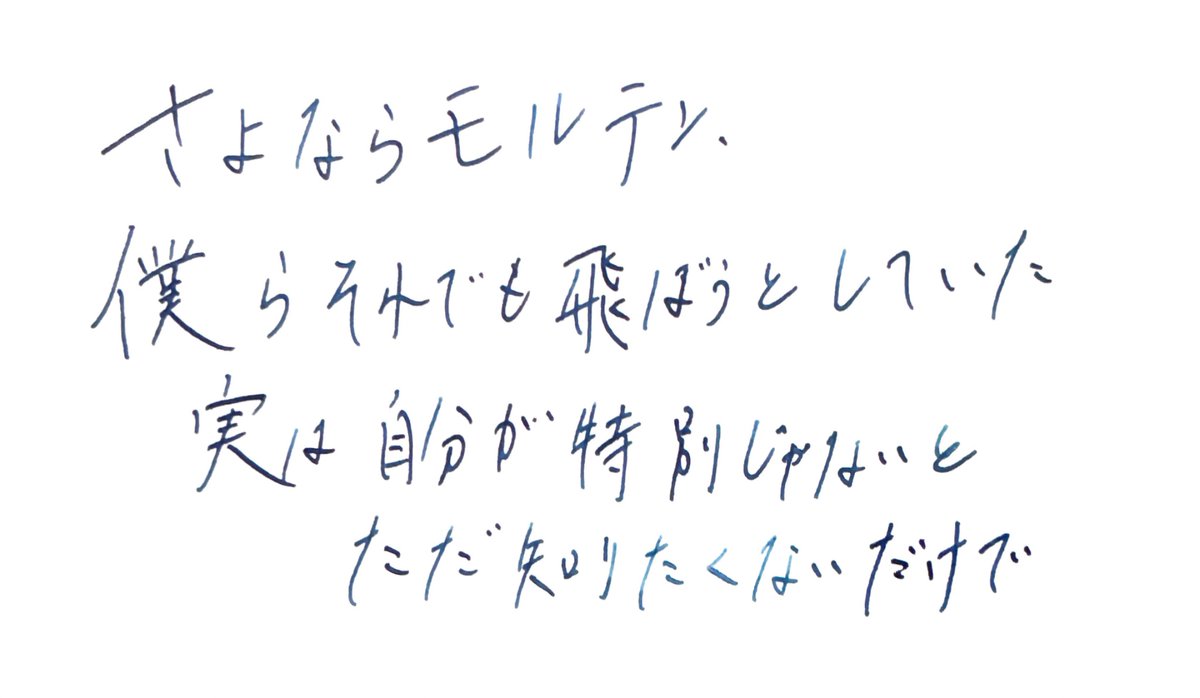 さよならモルテン、
僕らそれでも飛ぼうとしていた
実は自分が特別じゃないと
ただ知りたくないだけで